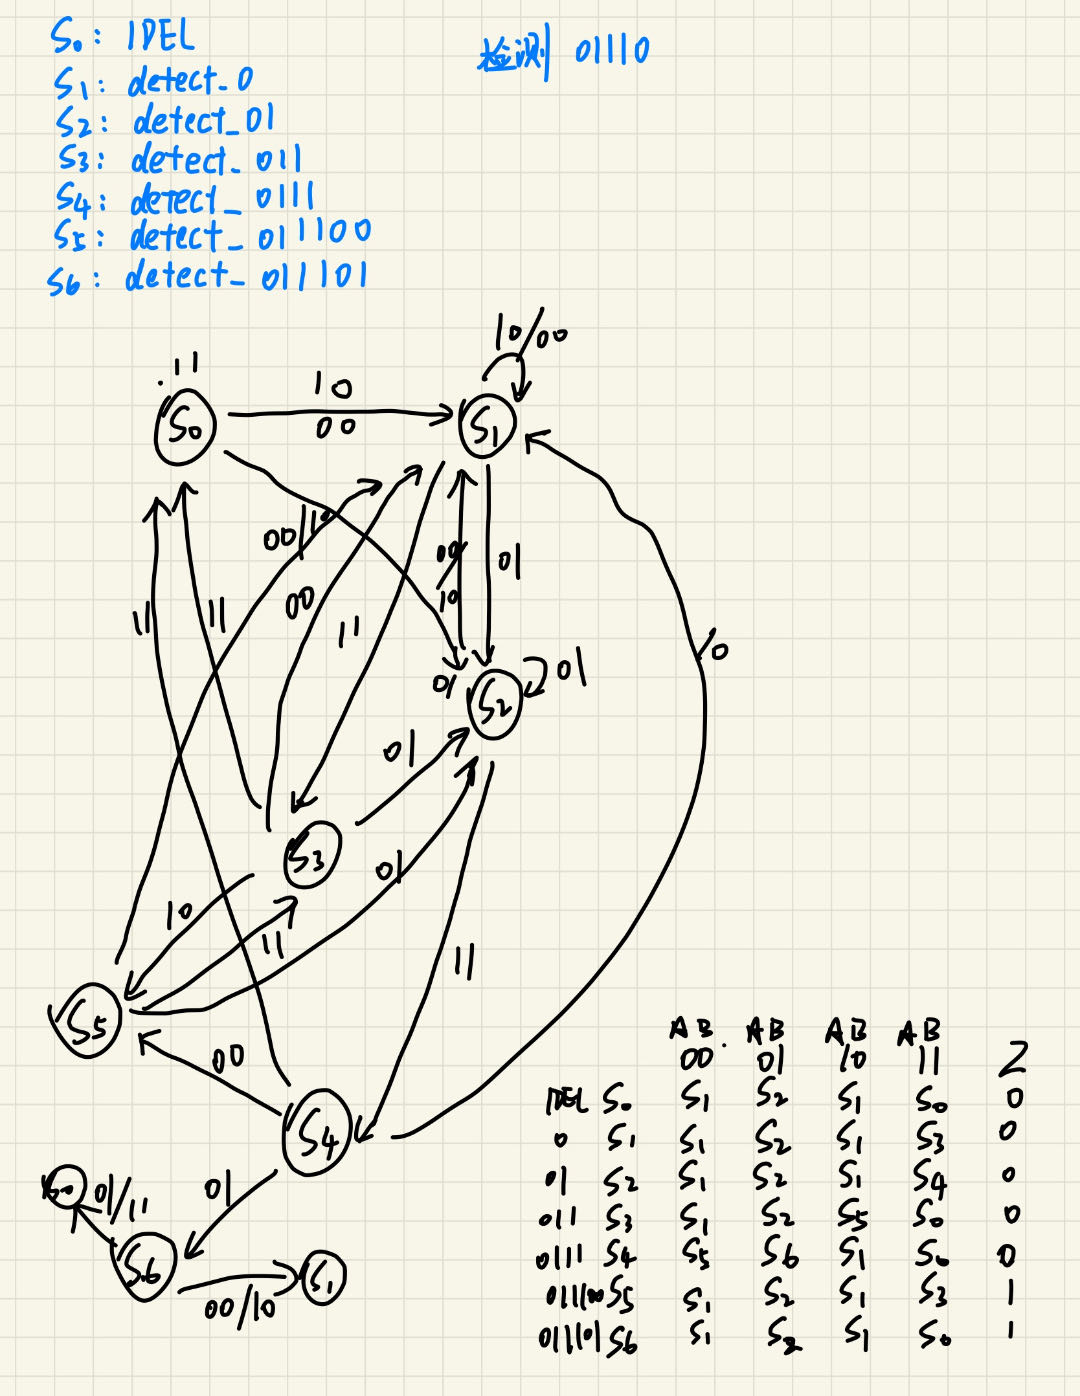 S0: IDEL
检测 01110
S1: detect_0
S2: detect_01
S3: detect_011
S4: detect_0111
S5: detect_011100
S6: detect_011101
10/00
11
10
S0
S1
00
00/10
00/10
01
00
11
11
11
10
01
01
S2
01
01
S3
01
10
11
11
S5
00
S4
S0
01/11
01
S6
S1
00/10
AB AB AB AB
00 01 10 11 Z
IDEL S0 S1 S2 S1 S0 0
0 S1 S1 S2 S1 S3 0
01 S2 S1 S2 S1 S4 0
011 S3 S1 S2 S5 S0 0
0111 S4 S5 S6 S1 S0 0
011100 S5 S1 S2 S1 S3 1
011101 S6 S1 S2 S1 S0 1